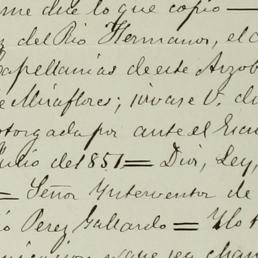 me dice lo que copio —
del Rio Hermanos, el c
Capellanias de este Arzob
e Miraflores; sirvase V. d
otorgada por ante el Escri
Julio del 1851 = Dios, Ley,
= Señor Ynterventor de
Perez Gallardo = Y lo t